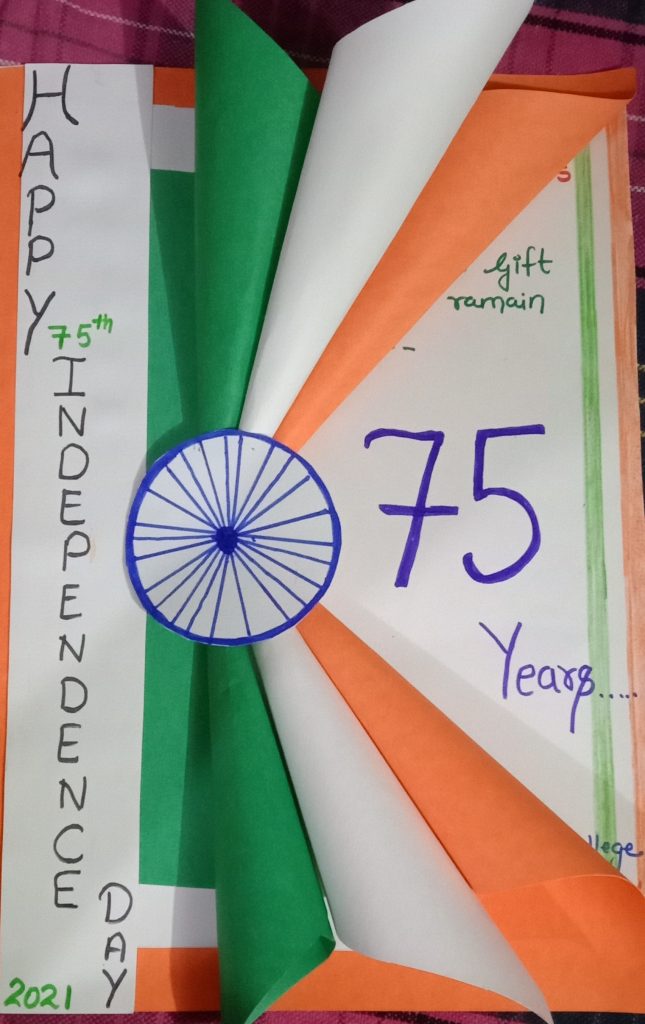 HAPPY
75th
INDEPENDENCE
DAY
2021
Gift
ramain
75
Years.....